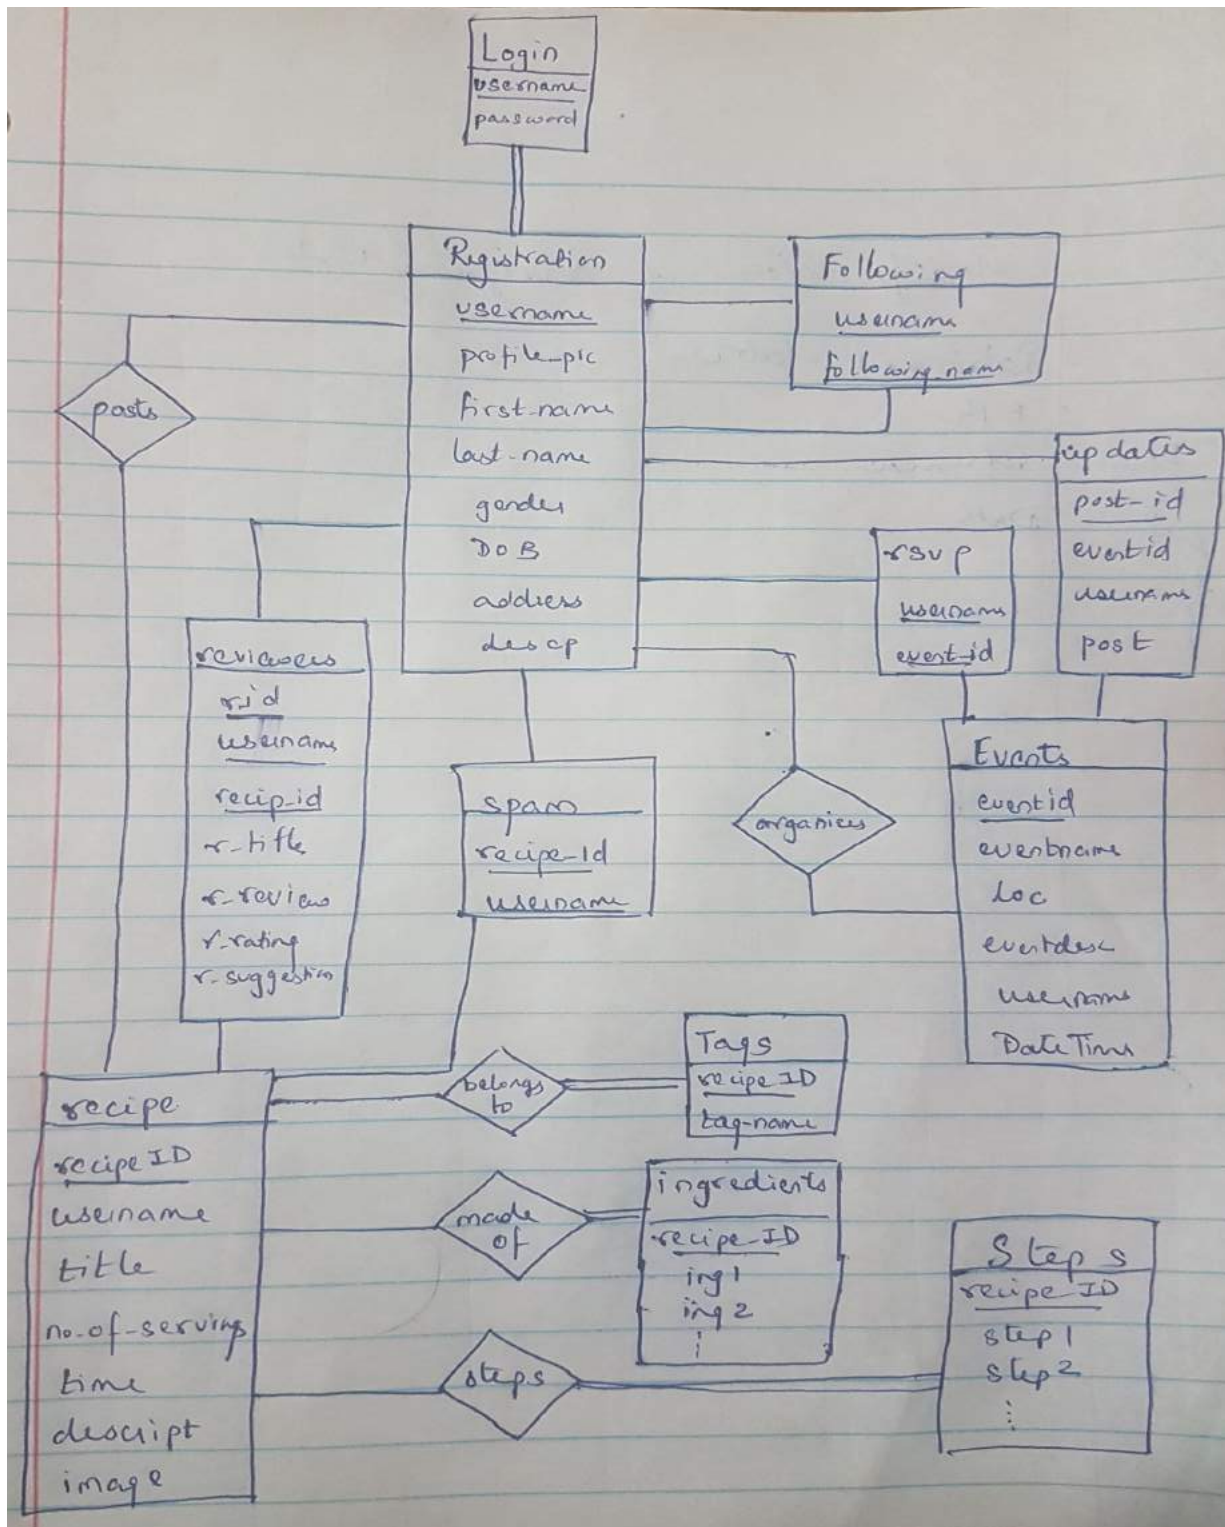 Login
username
password
Registration
username
profile_pic
first-name
last-name
gender
DOB
address
descp
Following
username
following_name
posts
updates
post-id
eventid
username
post
rsvp
username
event-id
reviewers
r_id
username
recip_id
r-title
r-review
r-rating
r-suggestion
spam
recipe-Id
username
organices
Events
eventid
eventname
Loc
eventdesc
username
DateTime
Tags
recipe ID
tag-name
belongs
to
recipe
recipe ID
username
title
no.of-servings
time
descript
image
made
of
ingredients
recipe-ID
ing 1
ing 2
⋮
steps
Steps
recipe ID
step 1
step 2
⋮